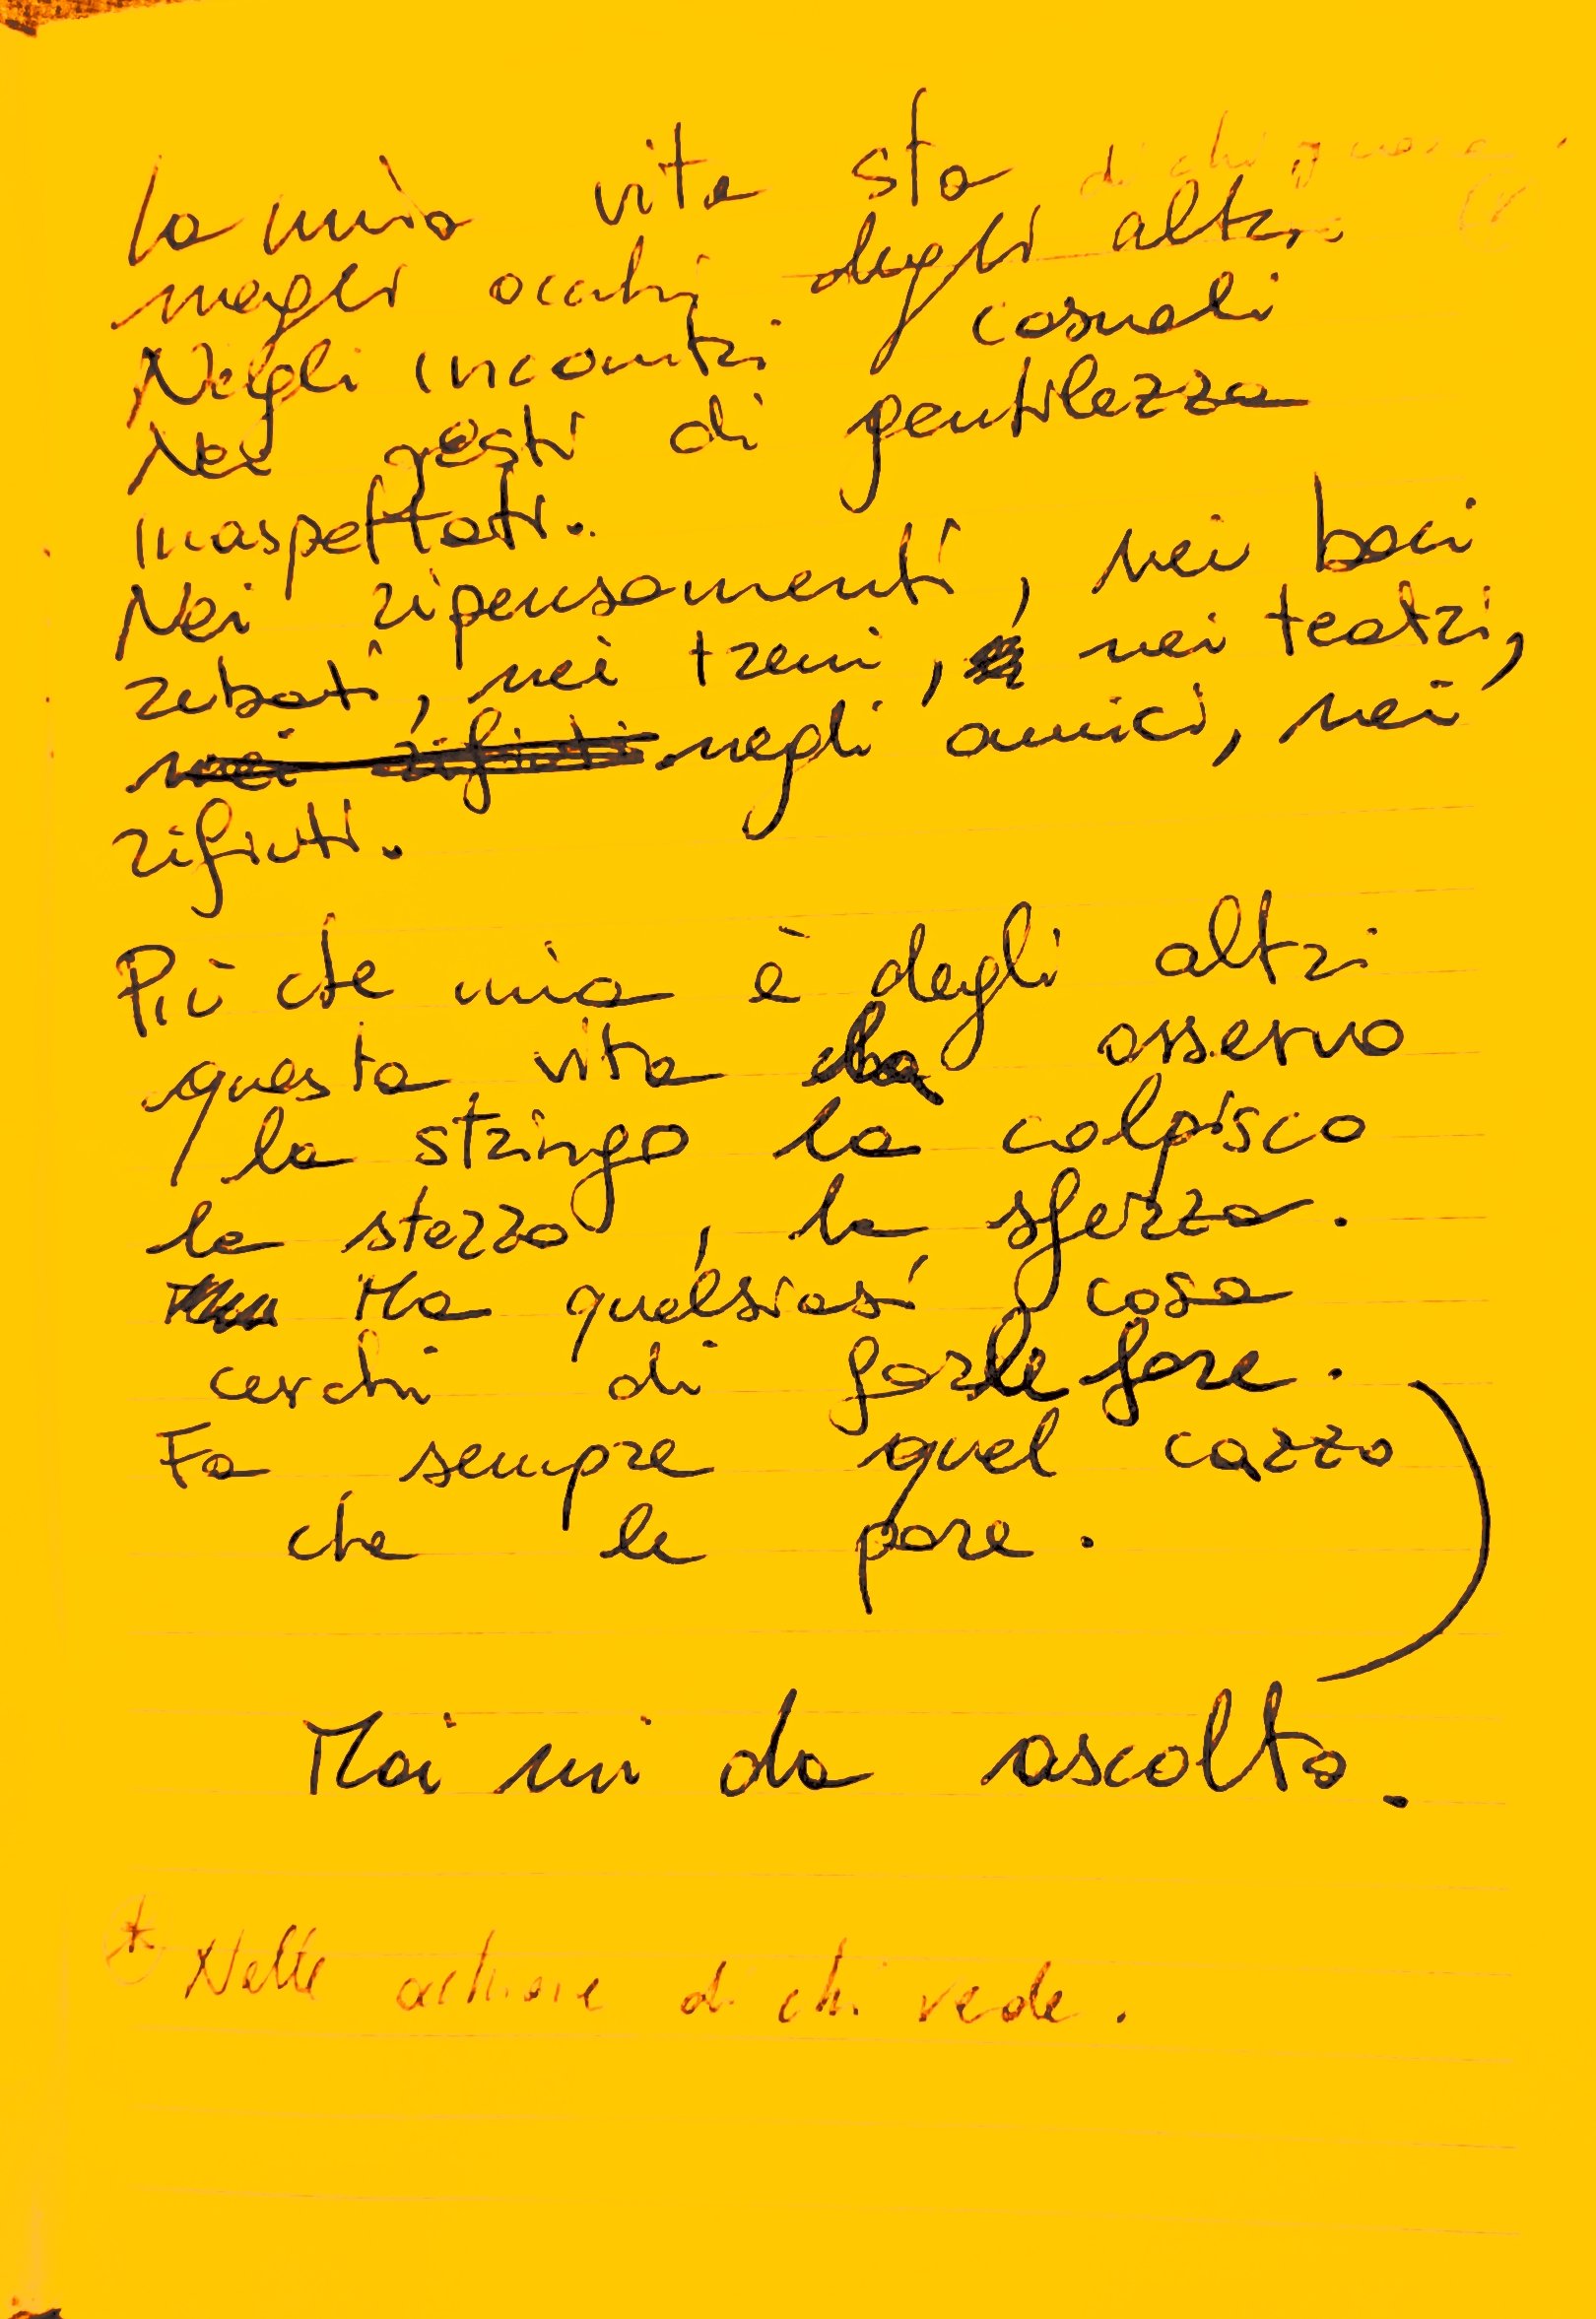 La mia vita sta di chi
negli occhi degli altri
Negli incontri casuali
Nei gesti di gentilezza
inaspettati.
Nei ripensamenti, nei baci
rubati, nei treni, nei teatri,
nei rifiuti negli amici, nei
rifiuti.
Più che mia è degli altri
questa vita che osservo
la stringo la colpisco
la stezzo, la sferzo.
Ma qualsiasi cosa
cerchi di farle fare.
Fa sempre quel cazzo
che le pare.
Mai mi da ascolto.
* Nelle di chi vede.